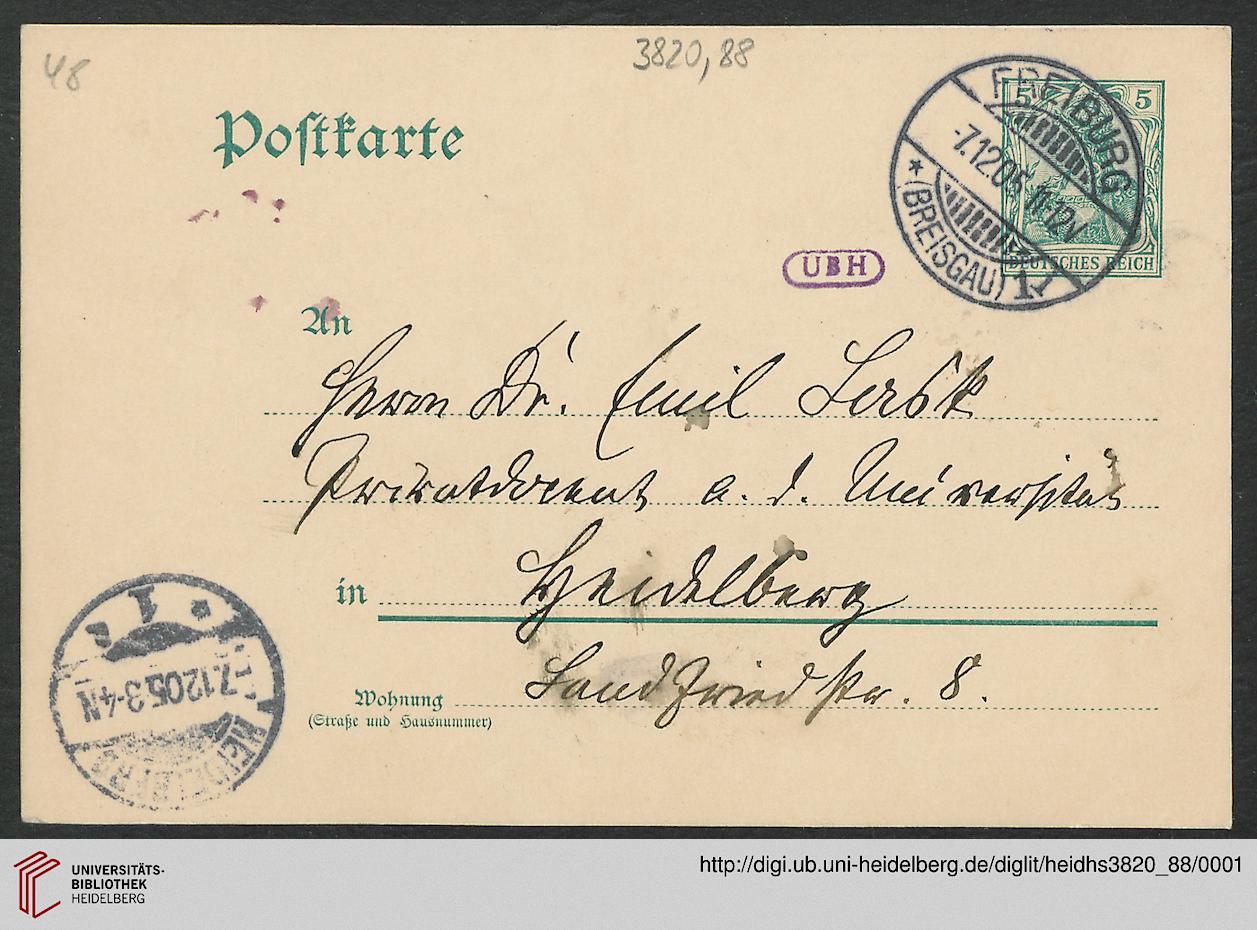 48
3820,88
Postkarte
5 5
DEUTSCHES REICH
FREIBURG
-7.12.05.11-12V
* (BREISGAU) 1.
UBH
An
Herrn Dr. Emil Lask
Privatdocent a. d. Universität
in Heidelberg
Landfriedstr. 8.
Wohnung
(Straße und Hausnummer)
HEIDELBERG
7.12 05. 3-4 N
* 1
UNIVERSITÄTS-
BIBLIOTHEK
HEIDELBERG
http://digi.ub.uni-heidelberg.de/diglit/heidhs3820_88/0001